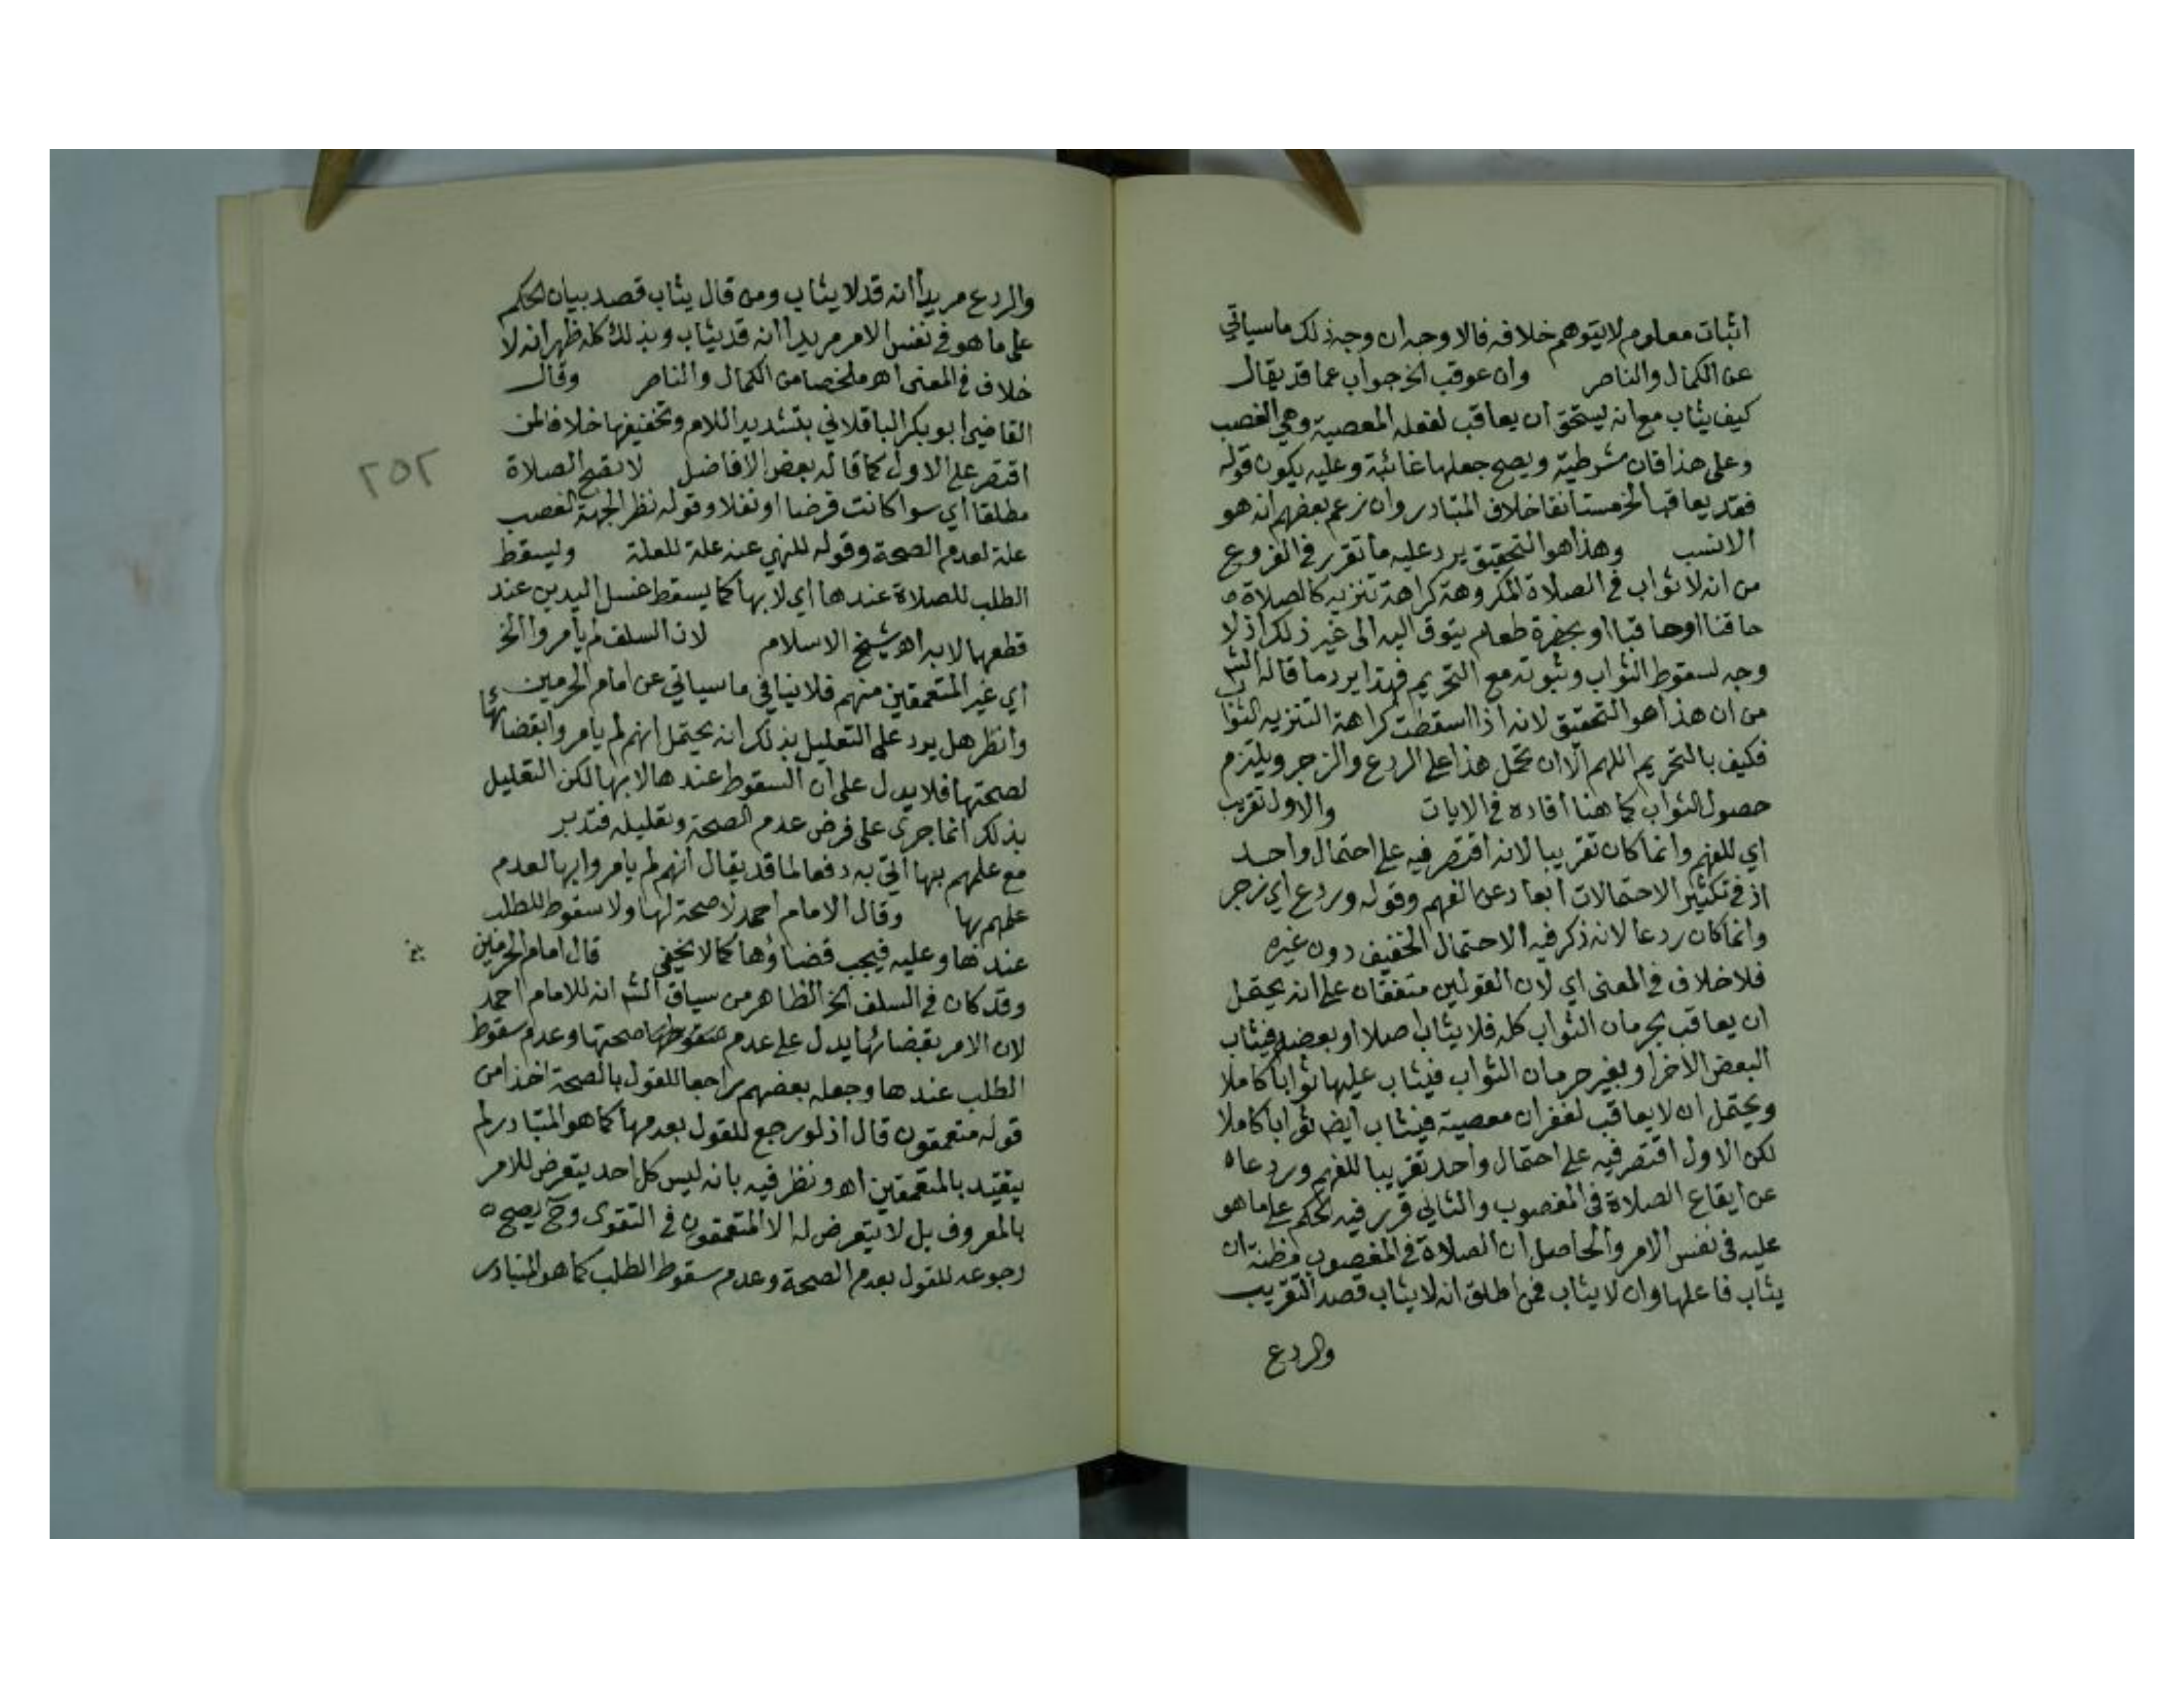 اثبات معلوم لا يتوهم خلافه فالاوجه ان وجه ذلك ما سياتي
عن الكمال والناصر وان عوقب الخ جواب عما قد يقال
كيف يثاب مع انه يستحق ان يعاقب لفعله المعصية وهي الغصب
وعلى هذا فان شرطية ويصح جعلها غائية وعليه يكون قوله
فقد يعاقب الخ مستانفا خلاف المتبادر وان زعم بعضهم انه هو
الانسب وهذا هو التحقيق يرد عليه ما تقرر في الفروع
من انه لا ثواب في الصلاة المكروهة كراهة تنزيه كالصلاة
حاقنا او حاقبا او بحضرة طعام يتوق اليه الى غير ذلك اذ لا
وجه لسقوط الثواب وثبوته مع التحريم فهذا يرد ما قاله الش
من ان هذا هو التحقيق لانه اذا اسقطت كراهة التنزيه الثواب
فكيف بالتحريم اللهم الا ان تحمل هذا على الردع والزجر ويلتزم
حصول الثواب كما هنا افاده في الايات والاول تقريب
اي للفهم وانما كان تقريبا لانه اقتصر فيه على احتمال واحد
اذ في تكثير الاحتمالات ابعاد عن الفهم وقوله وردع اي زجر
وانما كان ردعا لانه ذكر فيه الاحتمال الخفيف دون غيره
فلا خلاف في المعنى اي لان القولين متفقان على انه يحتمل
ان يعاقب بحرمان الثواب كله فلا يثاب اصلا او بعضه فيثاب
البعض الاخر او بغير حرمان الثواب فيثاب عليها ثوابا كاملا
ويحتمل ان لا يعاقب لغفران معصية فيثاب ايض ثوابا كاملا
لكن الاول اقتصر فيه على احتمال واحد تقريبا للفهم وردعا
عن ايقاع الصلاة في المغصوب والثاني قرر فيه الحكم على ما هو
عليه في نفس الامر والحاصل ان الصلاة في المغصوب مظنة ان
يثاب فاعلها وان لا يثاب فمن اطلق انه لا يثاب قصد التقريب
والردع
والردع مريدا انه قد لا يثاب ومن قال يثاب قصد بيان الحكم
على ما هو في نفس الامر مريدا انه قد يثاب وبذلك كله ظهر انه لا
خلاف في المعنى اه ملخصا من الكمال والناصر وقال
القاضي ابو بكر الباقلاني بتشديد اللام وتخفيفها خلافا لمن
اقتصر على الاول كما قاله بعض الافاضل لا تصح الصلاة
مطلقا اي سوا كانت فرضا او نفلا وقوله نظر الجهة الغصب
علة لعدم الصحة وقوله للنهي عنه علة للعلة ويسقط
الطلب للصلاة عندها اي لا بها كما يسقط غسل اليدين عند
قطعها لا به اه شيخ الاسلام لان السلف لم يامروا الخ
اي غير المتعمقين منهم فلا ينافي ما سياتي عن امام الحرمين
وانظر هل يرد على التعليل بذلك انه يحتمل انهم لم يامروا بقضائها
لصحتها فلا يدل على ان السقوط عندها لا بها لكن التعليل
بذلك انما جرى على فرض عدم الصحة وتعليله فتدبر
مع علمهم بها اتي به دفعا لما قد يقال انهم لم يامروا بها لعدم
علمهم بها وقال الامام احمد لا صحة لها ولا سقوط للطلب
عندها وعليه فيجب قضاؤها كما لا يخفى قال امام الحرمين
وقد كان في السلف الخ الظاهر من سياق الش انه للامام احمد
لان الامر بقضائها يدل على عدم صحتها وعدم سقوط
الطلب عندها وجعله بعضهم راجعا للقول بالصحة اخذا من
قوله متعمقون قال اذ لو رجع للقول بعدمها كما هو المتبادر لم
يتقيد بالمتعمقين اه ونظر فيه بانه ليس كل احد يتعرض للامر
بالمعروف بل لا يتعرض له الا المتعمقون في التقوى وح يصح
رجوعه للقول بعدم الصحة وعدم سقوط الطلب كما هو المتبادر
٢٥٢